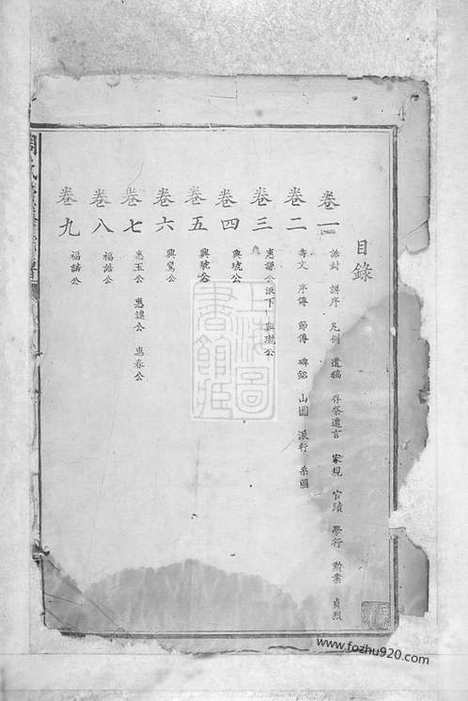 目錄
卷一 誥封 譜序 凡例 遺稿 存菴遺言 家規 官蹟 學行 勲業 貞烈
卷二 壽文 序傳 節傳 碑銘 山圖 派行 系圖
卷三 惠譜公派下 興瓛公
卷四 興琥公
卷五 興琥公
卷六 興駕公
卷七 惠玉公 惠遠公 惠春公
卷八 福誥公
卷九 福誥公
www.fozhu920.com